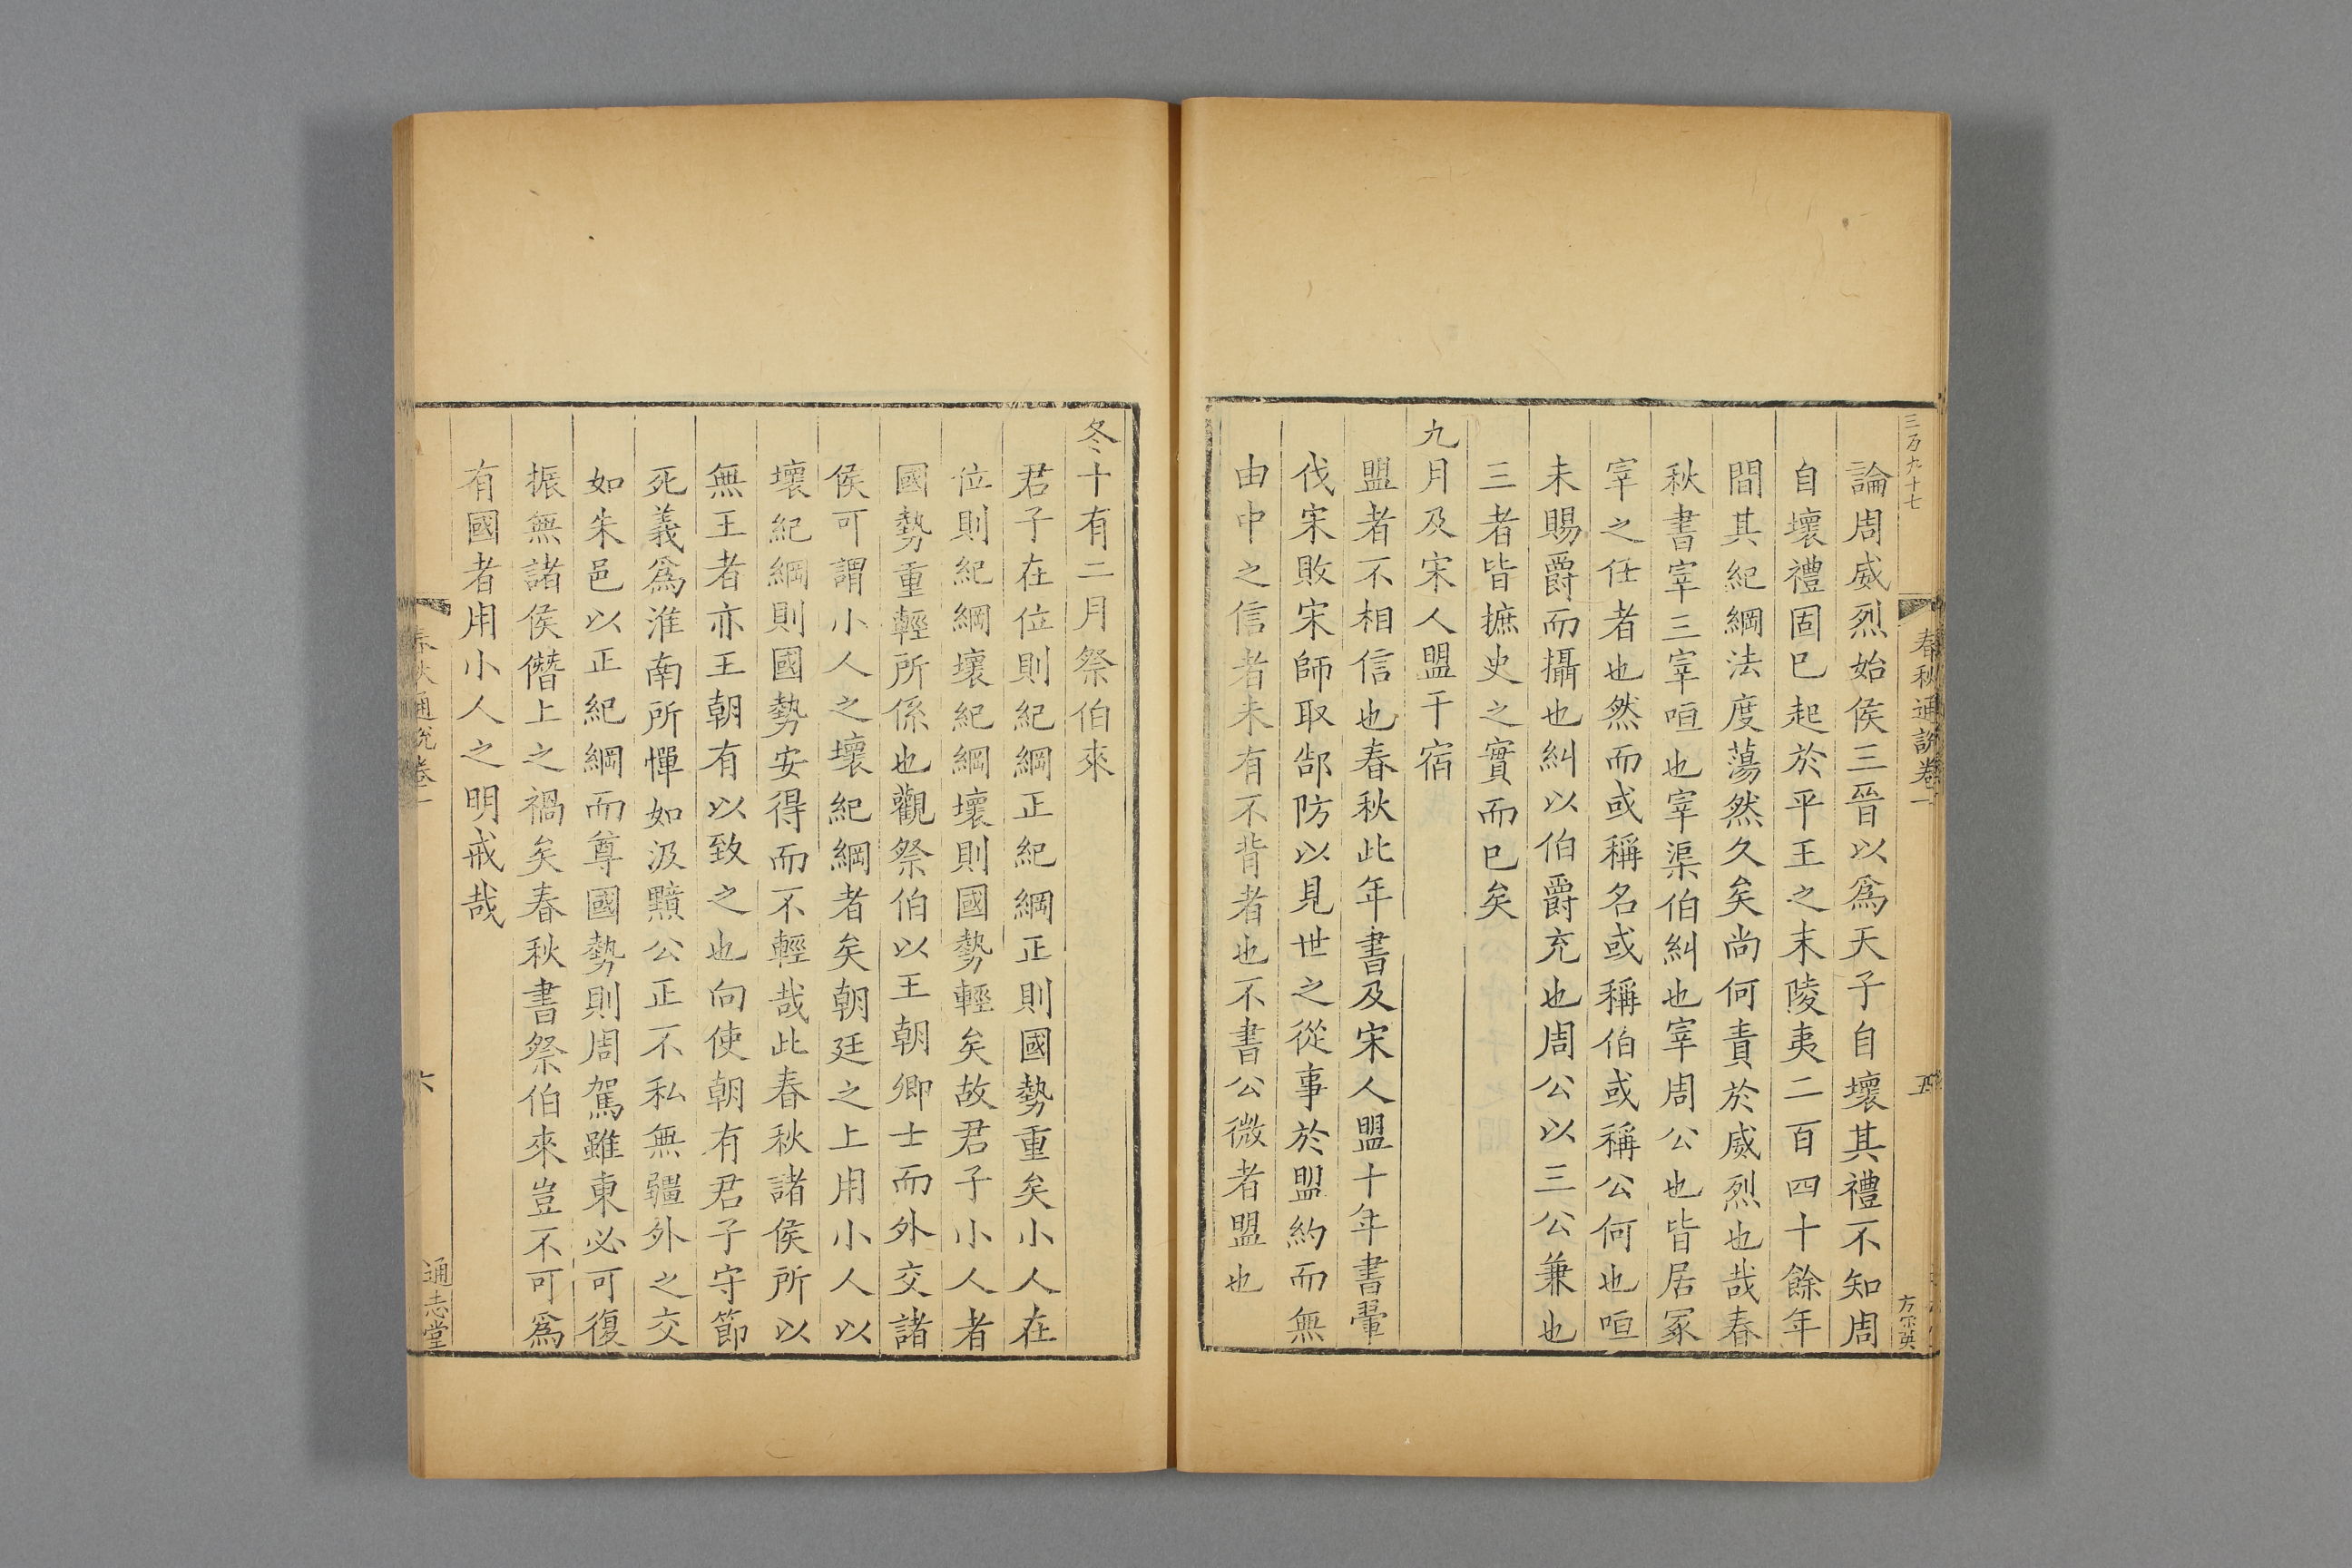 三百九十七
春秋通說卷一
五
方宗英
論周威烈始侯三晉以爲天子自壞其禮不知周
自壞禮固已起於平王之末陵夷二百四十餘年
間其紀綱法度蕩然久矣尚何責於威烈也哉春
秋書宰三宰咺也宰渠伯糾也宰周公也皆居冢
宰之任者也然而或稱名或稱伯或稱公何也咺
未賜爵而攝也糾以伯爵充也周公以三公兼也
三者皆摭史之實而已矣
九月及宋人盟于宿
盟者不相信也春秋此年書及宋人盟十年書翬
伐宋敗宋師取郜防以見世之從事於盟約而無
由中之信者未有不背者也不書公微者盟也
冬十有二月祭伯來
君子在位則紀綱正紀綱正則國勢重矣小人在
位則紀綱壞紀綱壞則國勢輕矣故君子小人者
國勢重輕所係也觀祭伯以王朝卿士而外交諸
侯可謂小人之壞紀綱者矣朝廷之上用小人以
壞紀綱則國勢安得而不輕哉此春秋諸侯所以
無王者亦王朝有以致之也向使朝有君子守節
死義爲淮南所憚如汲黯公正不私無疆外之交
如朱邑以正紀綱而尊國勢則周駕雖東必可復
振無諸侯僭上之禍矣春秋書祭伯來豈不可爲
有國者用小人之明戒哉
春秋通說卷一
六
通志堂